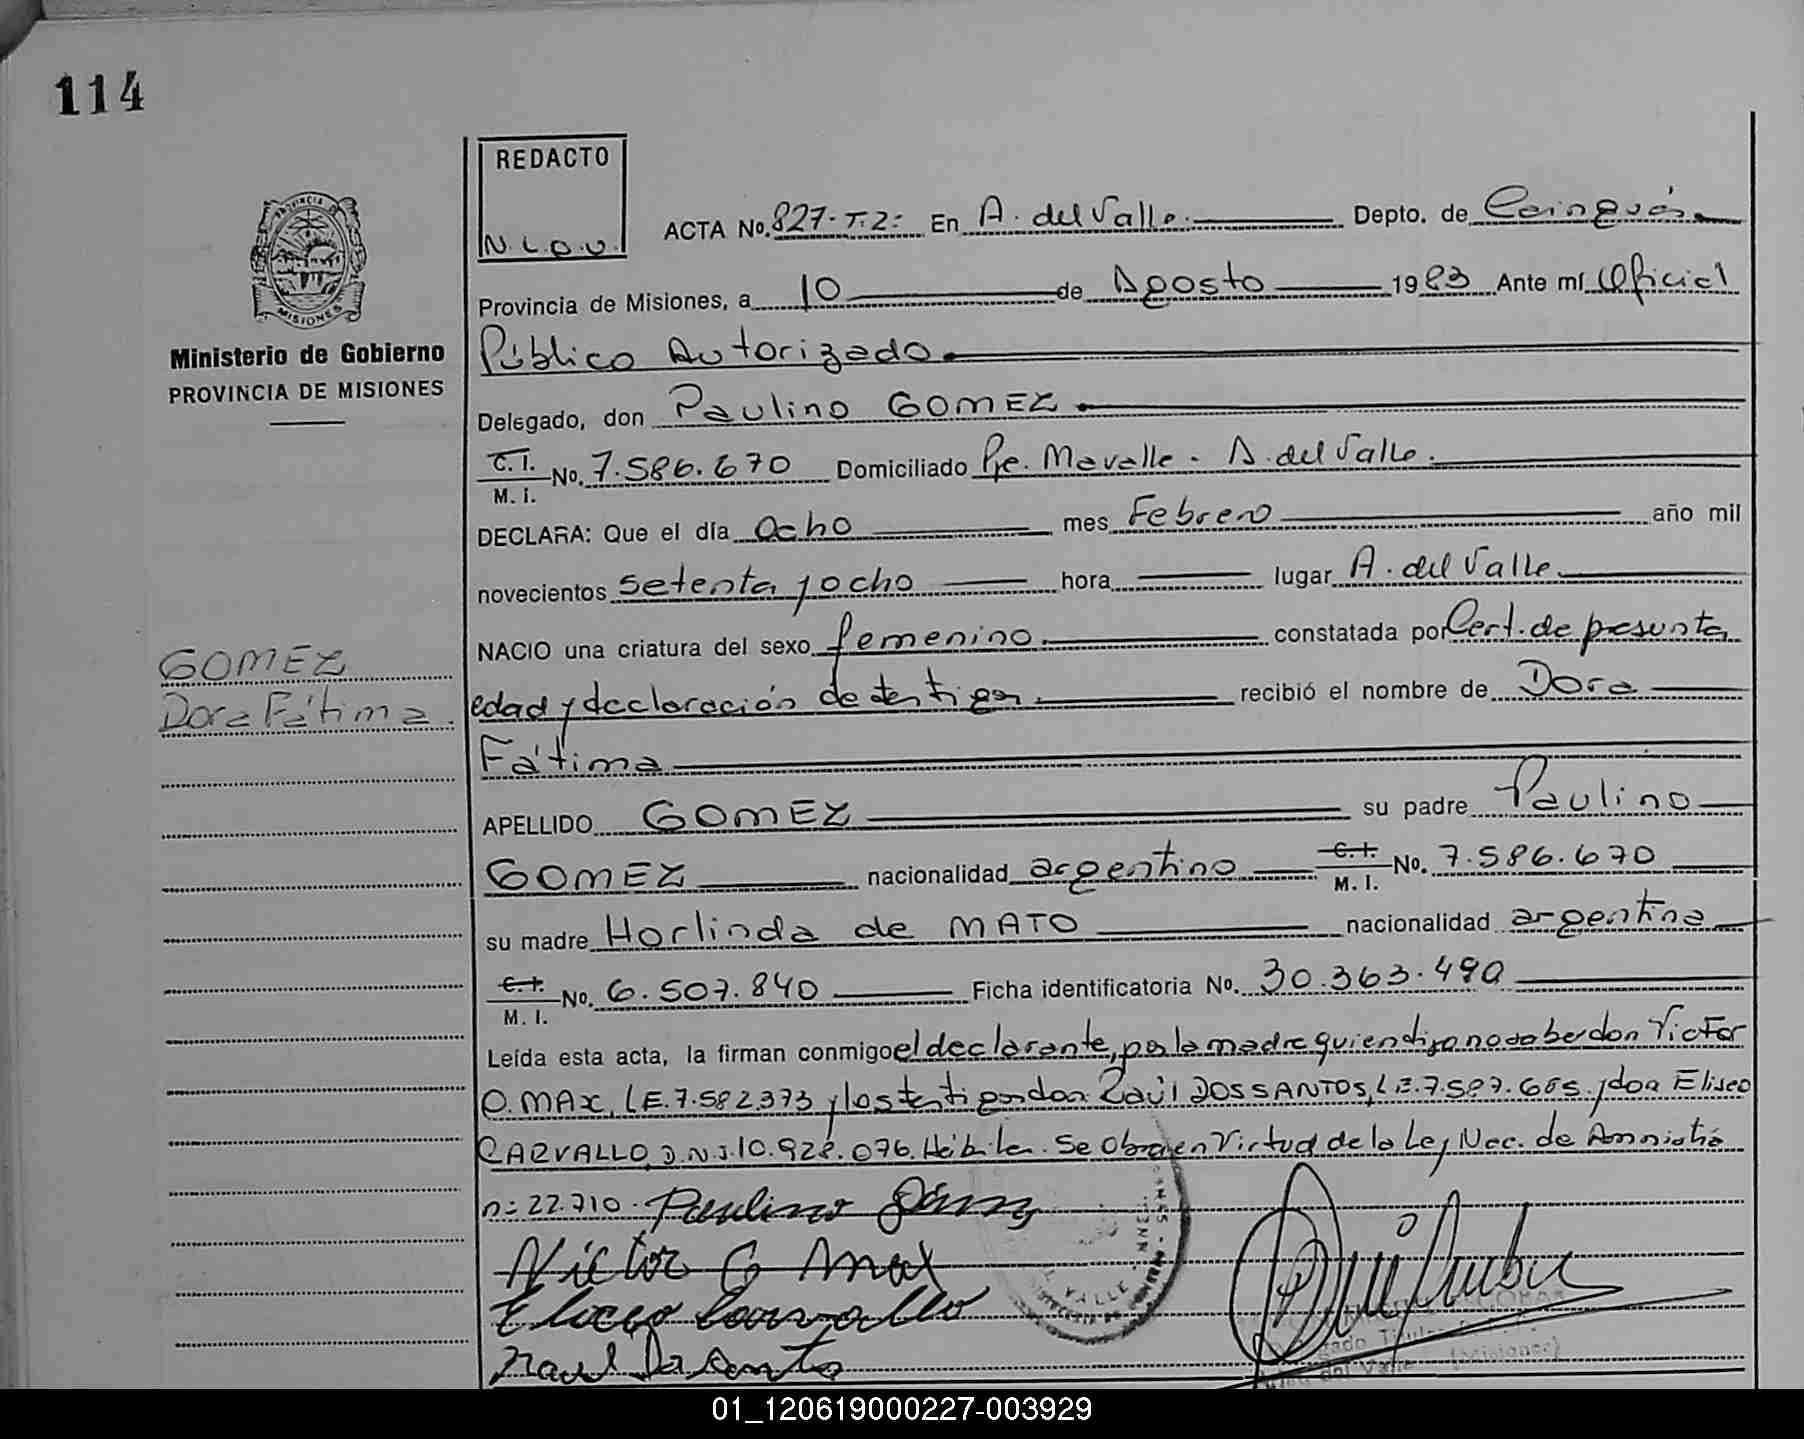 114
REDACTO
N.L.O.U.
PROVINCIA DE
MISIONES
Ministerio de Gobierno
PROVINCIA DE MISIONES
ACTA No. 827-T-2: En A. del Valle Depto. de Cainguás
Provincia de Misiones, a 10 de Agosto 1983 Ante mí Oficial
Público Autorizado
Delegado, don Paulino GOMEZ
C.I. M.I. No. 7.586.670 Domiciliado Pje. Mavalle - A. del Valle.
DECLARA: Que el día Ocho mes Febrero año mil
novecientos setenta y ocho hora lugar A. del Valle
NACIO una criatura del sexo femenino constatada por Cert. de presunta
GOMEZ
Dora Fátima.
edad y declaración de testigos recibió el nombre de Dora
Fátima
APELLIDO GOMEZ su padre Paulino
GOMEZ nacionalidad argentino C.I. M.I. No. 7.586.670
su madre Horlinda de MATO nacionalidad argentina
C.I. M.I. No. 6.507.840 Ficha identificatoria No. 30.363.490
Leída esta acta, la firman conmigo el declarante, por la madre quien dijo no saber don Victor
O. MAX, LE. 7.582.373 y los testigos don Raúl DOSSANTOS, L.E. 7.587.685. y don Eliseo
CARVALLO D.N.I. 10.928.076. Hábiles. Se Obra en Virtud de la Ley Nac. de Amnistía
n: 22.710. Paulino Gómez
Victor O Max
Eliseo Carvallo
Raul Da Santo
VALLE
01_120619000227-003929